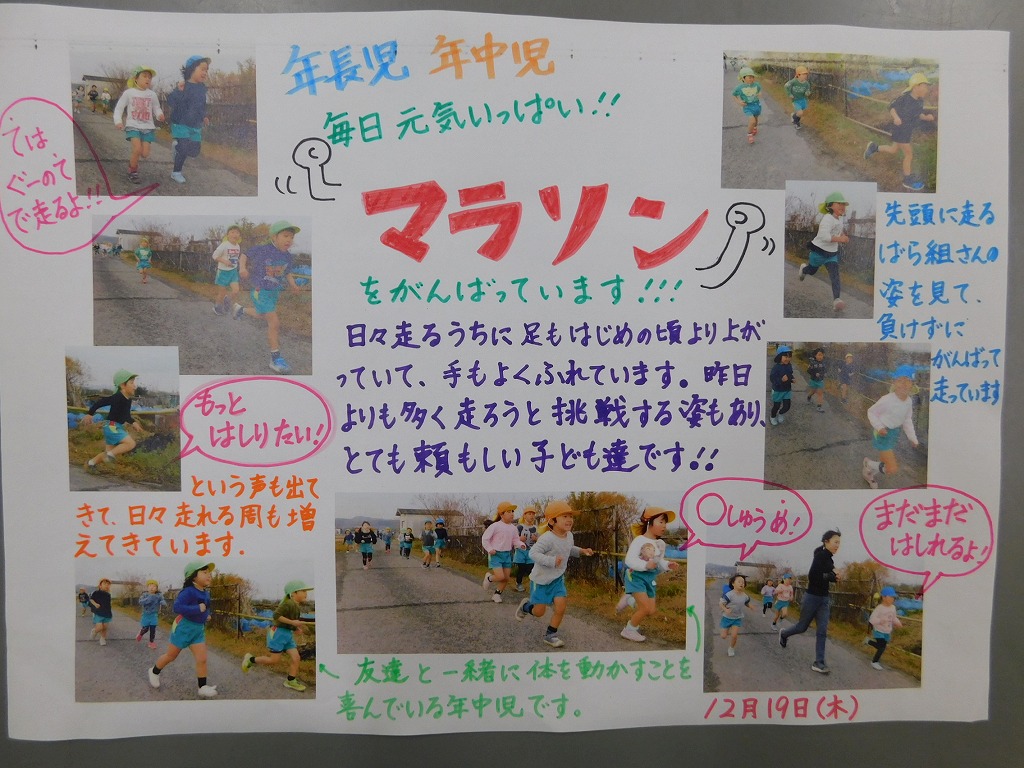 年長児 年中児
毎日 元気いっぱい!!
マラソン
をがんばっています!!!
ては
ぐーのて
で走るよ!!
日々走るうちに足もはじめの頃より上が
っていて、手もよくふれています。昨日
よりも多く走ろうと挑戦する姿もあり、
とても頼もしい子ども達です!!
先頭に走る
ばら組さんの
姿を見て、
負けずに
がんばって
走っています
もっと
はしりたい!
という声も出て
きて、日々走れる周も増
えてきています.
〇しゅうめ!
まだまだ
はしれるよ!
← 友達と一緒に体を動かすことを
喜んでいる年中児です。
12月19日(木)